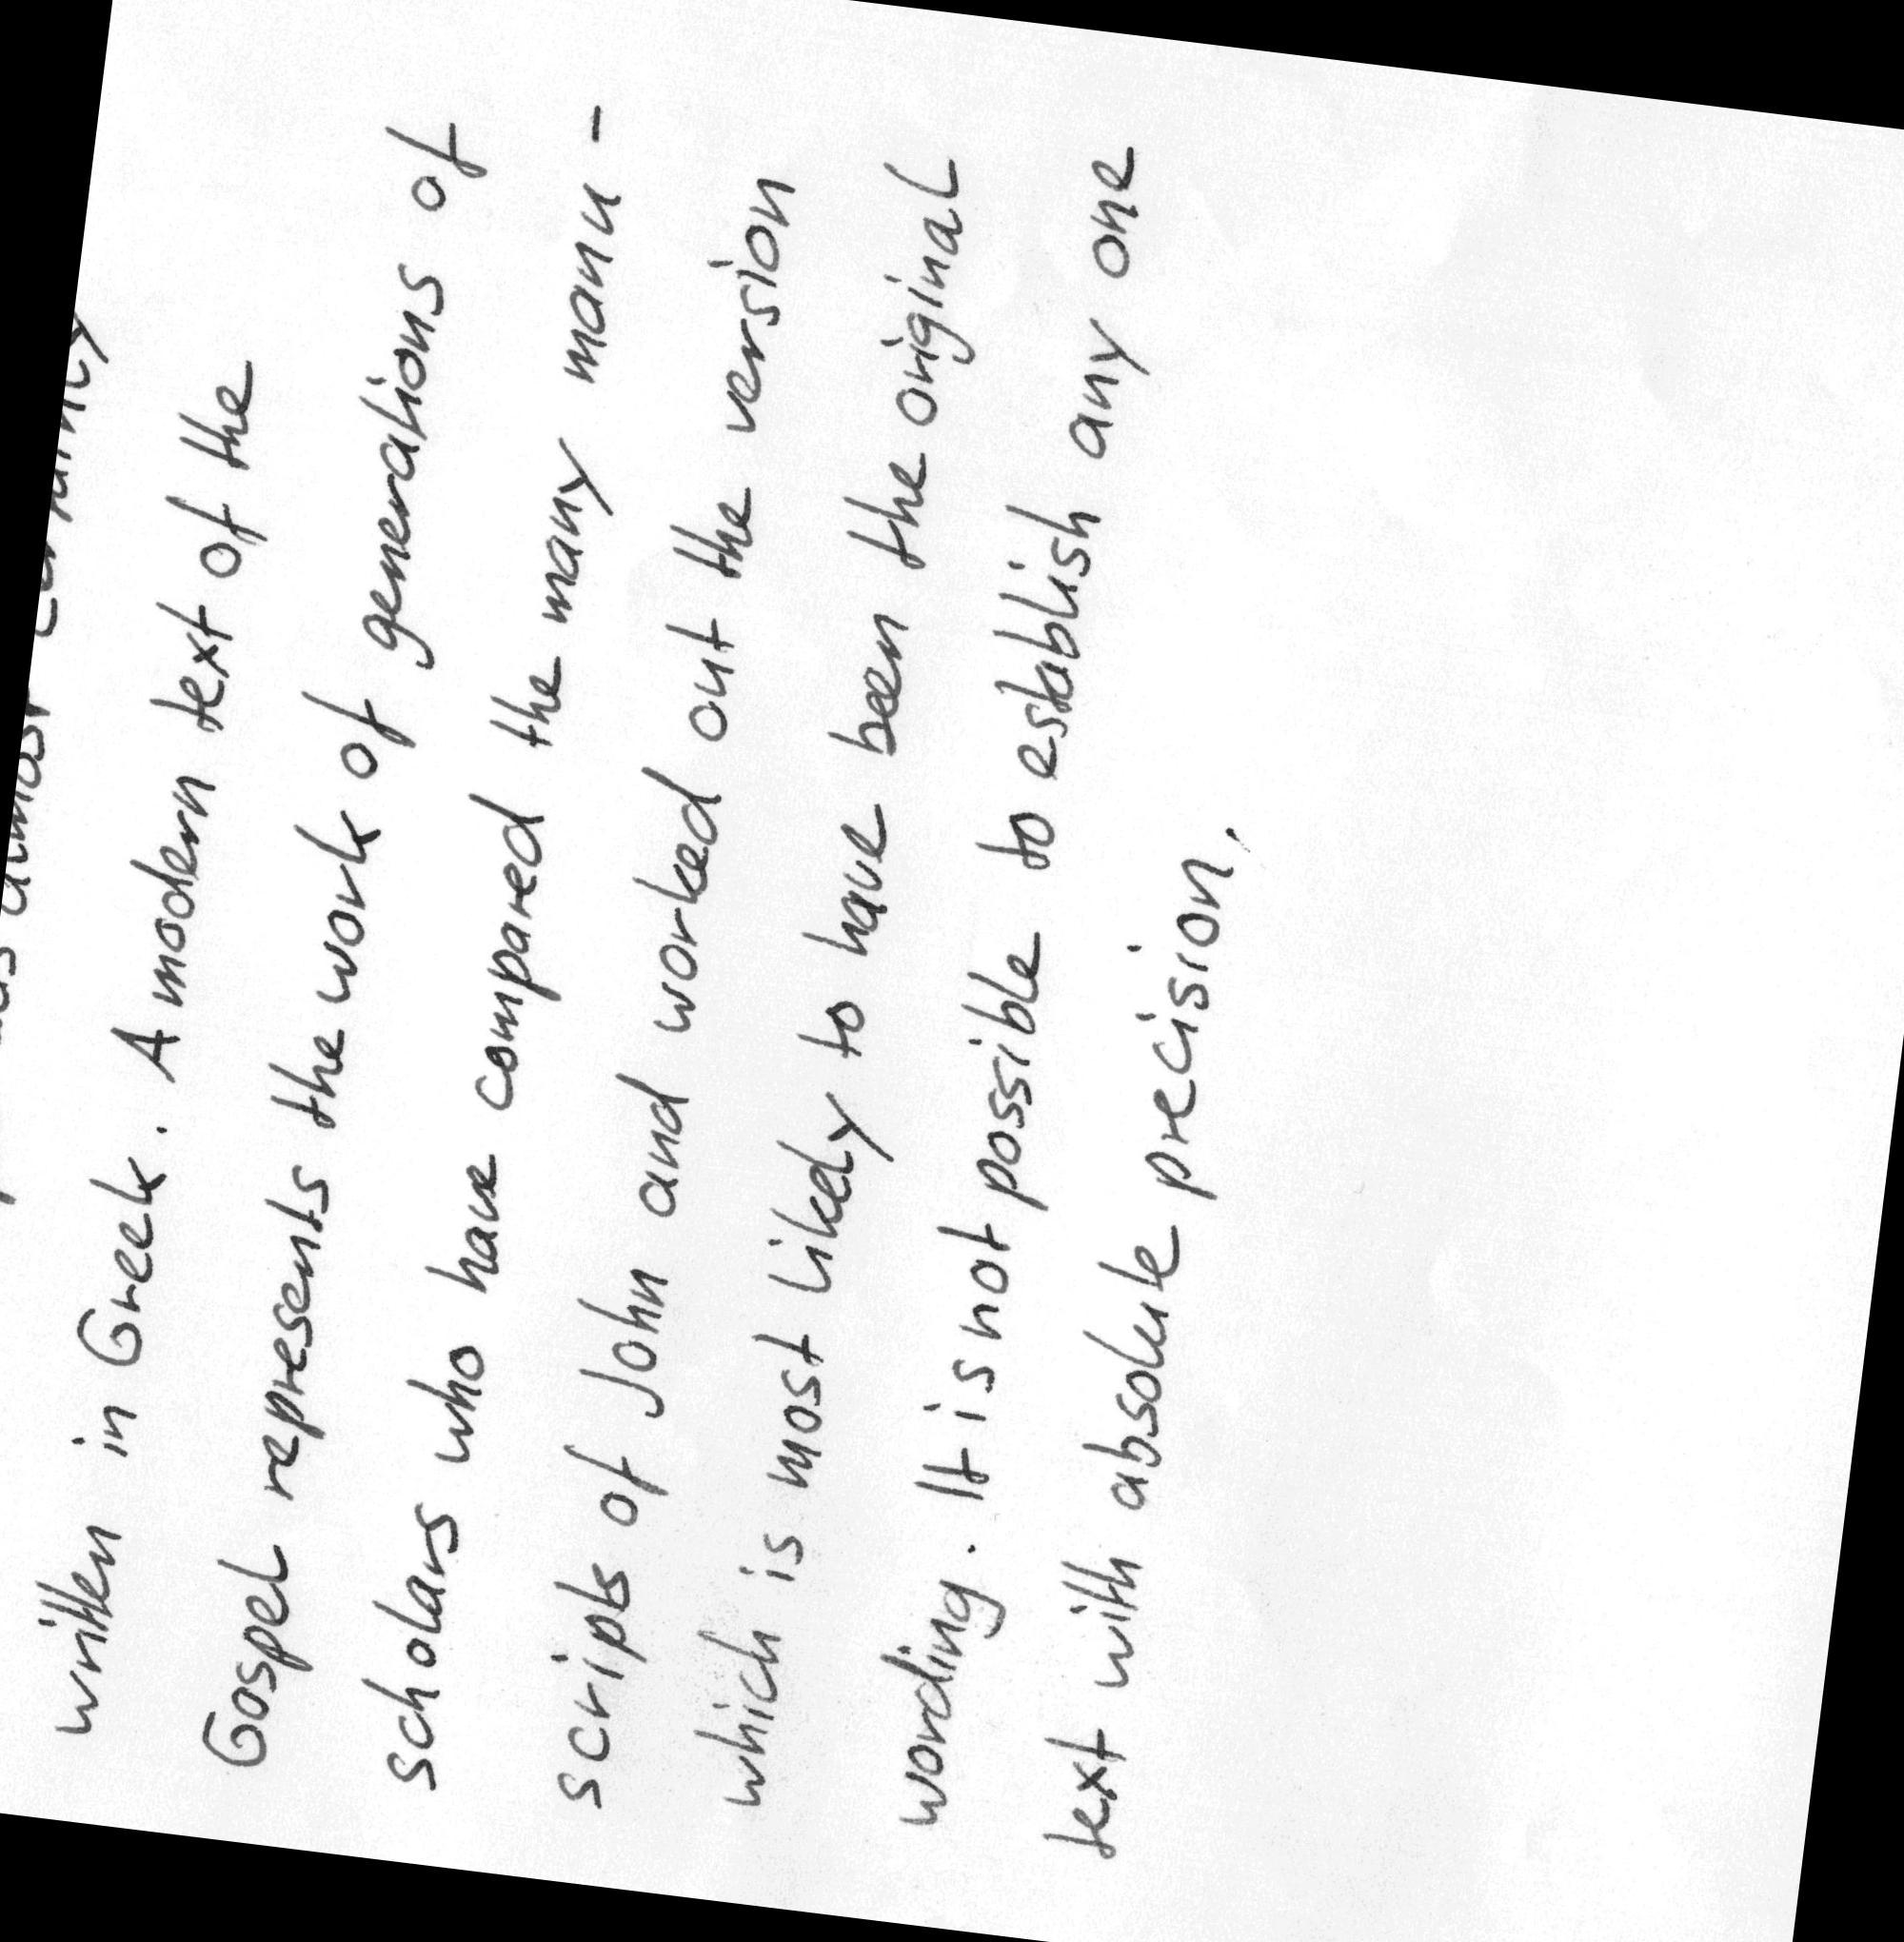 almost certainly
written in Greek. A modern text of the
Gospel represents the work of generations of
scholars who have compared the many manu -
scripts of John and worked out the version
which is most likely to have been the original
wording. It is not possible to establish any one
text with absolute precision.